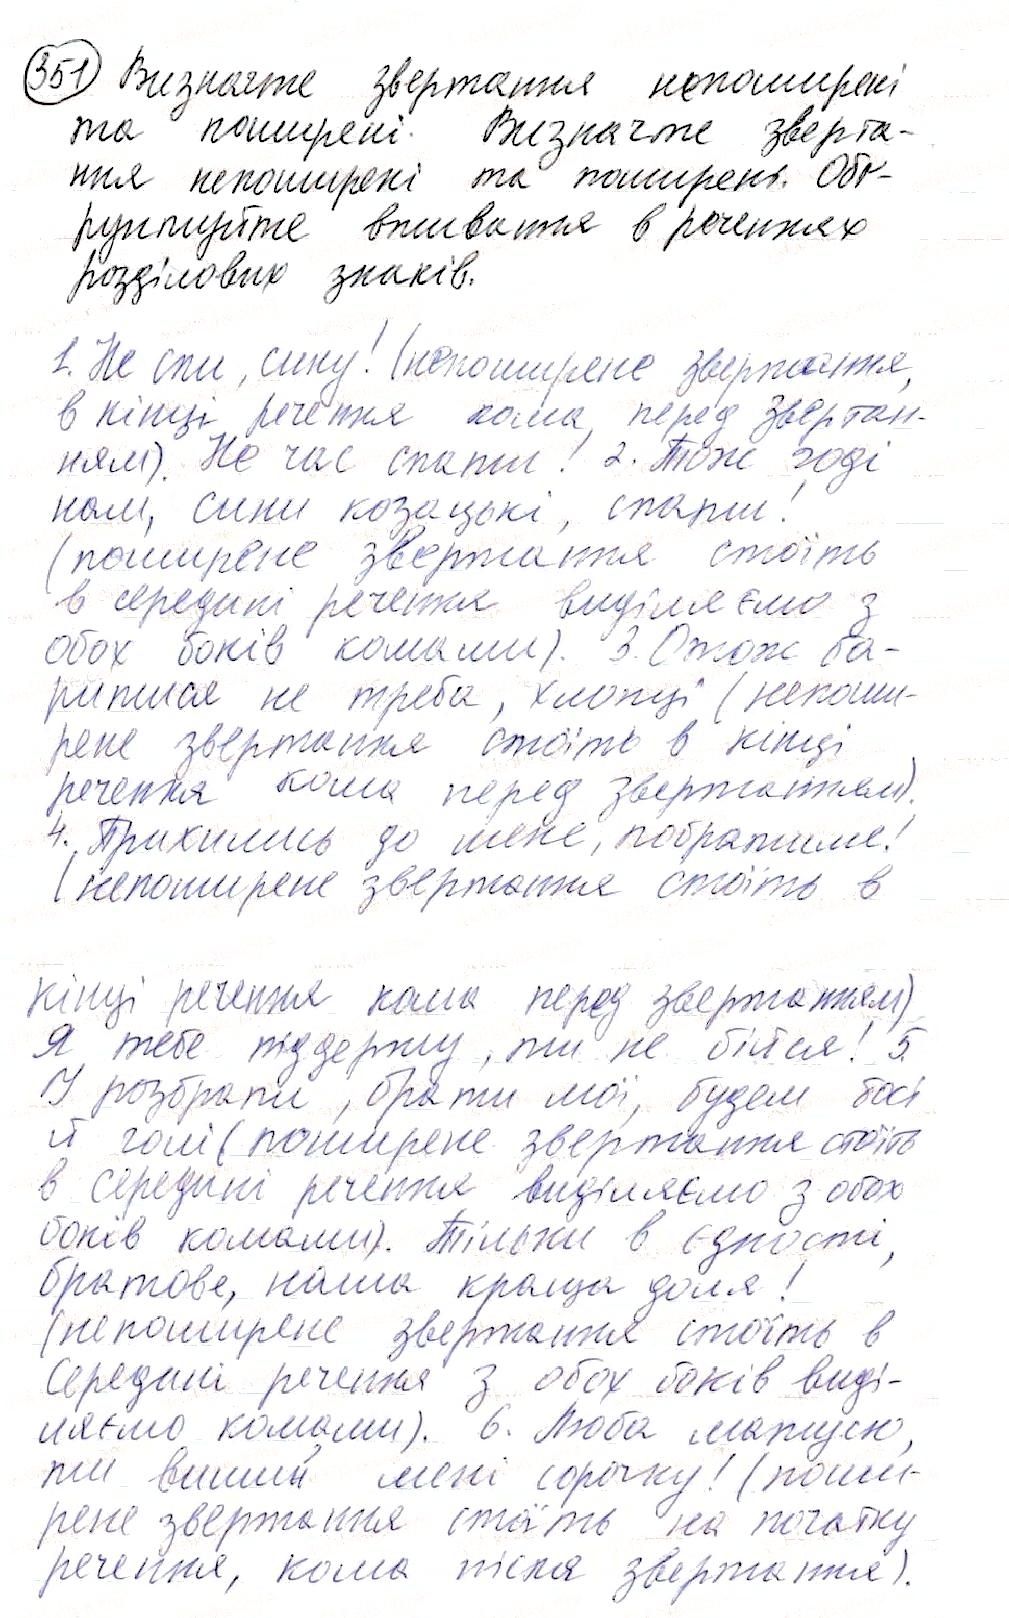 351 Визначте звертання непоширені
та поширені. Визначте зверта-
ння непоширені та поширені. Обґ-
рунтуйте вживання в реченнях
розділових знаків.
1. Не спи, сину! (непоширене звертання,
в кінці речення кома перед звертан-
ням). Не час спати! 2. Тож годі
нам, сини козацькі, спати!
(поширене звертання стоїть
в середині речення виділяємо з
обох боків комами). 3. Отож ба-
ритися не треба, хлопці (непоши-
рене звертання стоїть в кінці
речення кома перед звертанням).
4. Прихились до мене, побратиме!
(непоширене звертання стоїть в
кінці речення кома перед звертанням)
Я тебе піддержу, ти не бійся! 5.
У розбраті, брати мої, будем босі
й голі (поширене звертання стоїть
в середині речення виділяємо з обох
боків комами). Тільки в єдності,
братове, наша краща доля!
(непоширене звертання стоїть в
середині речення з обох боків виді-
ляємо комами). 6. Люба матусю,
ти виший мені сорочку! (поши-
рене звертання стоїть на початку
речення, кома після звертання).